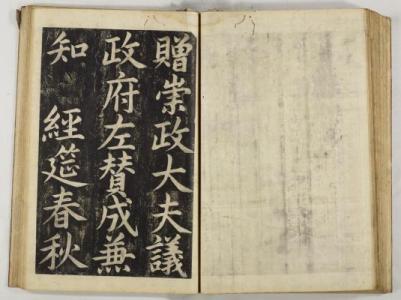 贈崇政大夫議
政府左賛成兼
知 經筵春秋